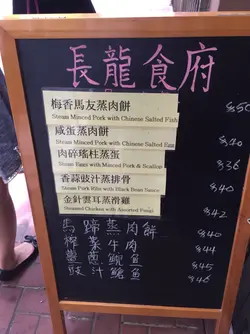 長龍食府
梅香馬友蒸肉餅
Steam Minced Pork with Chinese Salted Fish
咸蛋蒸肉餅
Steam Minced Pork with Chinese Salted Egg
肉碎瑤柱蒸蛋
$36
香蒜豉汁蒸排骨
Steam Pork Ribs with Black Bean Sauce
$40
金針雲耳蒸滑雞
Steamed Chicken with Assorted Fungi
$42
馬蹄蒸肉餅
$40
榨菜牛肉
$44
鯇魚
$45
豉汁鯇魚
$46